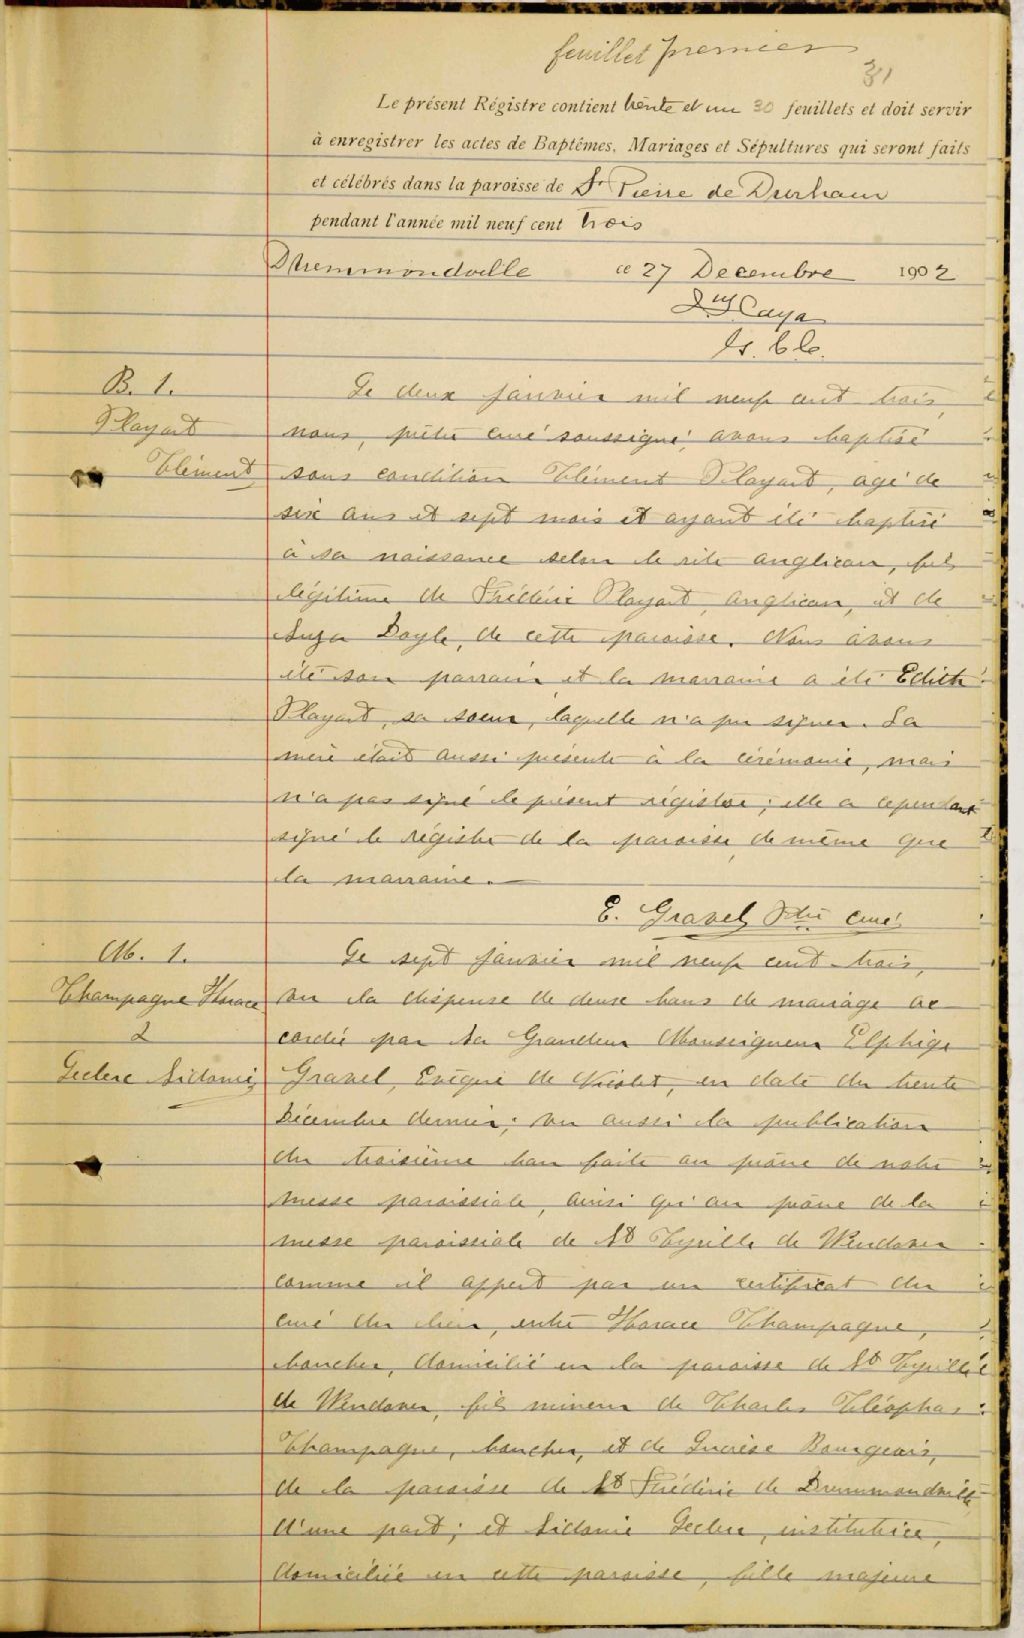 feuillet premier
31
Le présent Régistre contient trente et un 30 feuillets et doit servir
à enregistrer les actes de Baptêmes, Mariages et Sépultures qui seront faits
et célébrés dans la paroisse de St Pierre de Durham
pendant l'année mil neuf cent trois
Drummondville ce 27 Decembre 1902
Caya
B. 1.
Playart
Clément
Le deux janvier mil neuf cent trois,
nous, prêtre curé soussigné, avons baptisé
sous condition Clément Playart, agé de
six ans et sept mois et ayant été baptisé
à sa naissance selon le rite anglican, fils
légitime de Frédéric Playart, anglican, et de
Suza Doyle, de cette paroisse. Nous avons
été son parrain et la marraine a été Edith
Playart, sa soeur, laquelle n'a pu signer. La
mère était aussi présente à la cérémonie, mais
n'a pas signé le présent régistre; elle a cependant
signé le régistre de la paroisse, de même que
la marraine.
E. Gravel Ptre curé
M. 1.
Champagne Horace
&
Leclerc Sidonie
Le sept janvier mil neuf cent trois,
vu la dispense de deux bans de mariage ac
cordée par Sa Grandeur Monseigneur Elphège
Gravel, Evêque de Nicolet, en date du trente
Décembre dernier; vu aussi la publication
du troisième ban faite au prône de notre
messe paroissiale, ainsi qu'au prône de la
messe paroissiale de St Cyrille de Wendover
comme il appert par un certificat du
curé du lieu, entre Horace Champagne,
boucher, domicilié en la paroisse de St Cyrille
de Wendover, fils mineur de Charles Cléophas
Champagne, boucher, et de Lucrèse Bourgeois,
de la paroisse de St Frédéric de Drummondville
d'une part; et Sidonie Leclerc, institutrice,
domiciliée en cette paroisse, fille majeure